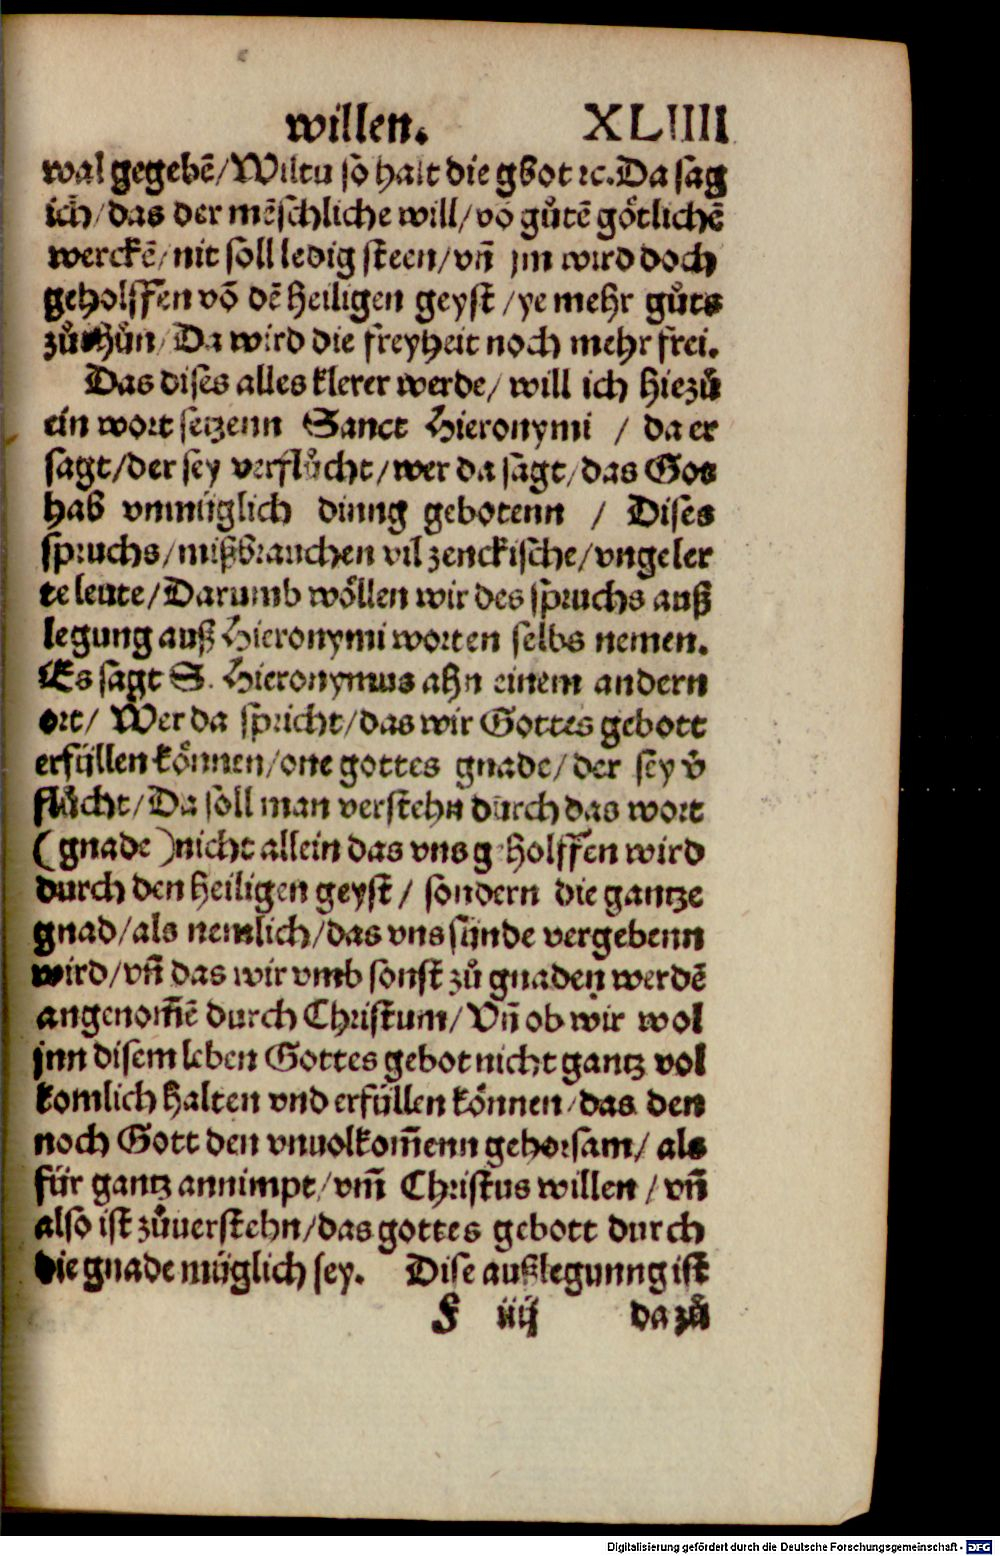 willen. XLIIII
wal gegebē/Wiltu so halt die gbot ꝛc. Da sag
ich/das der mēschliche will/vō gůtē götlichē
werckē/nit soll ledig steen/vn̄ jm wird doch
geholffen vō dē heiligen geyst/ye mehr gůts
zůthůn/Da wird die freyheit noch mehr frei.
Das dises alles klerer werde/will ich hiezů
ein wort setzenn Sanct Hieronymi / da er
sagt/der sey verflůcht/wer da sagt/das Gos
hab vnmüglich dinng gebotenn / Dises
spruchs/mißbrauchen vil zenckische/vngeler
te leute/Darumb wöllen wir des spruchs auß
legung auß Hieronymi worten selbs nemen.
Es sagt S. Hieronymus ahn einem andern
ort/ Wer da spricht/das wir Gottes gebott
erfüllen können/one gottes gnade/der sey v̄
flůcht/Da soll man verstehn durch das wort
(gnade)nicht allein das vns g holffen wird
durch den heiligen geyst/ sondern die gantze
gnad/als nemlich/das vns sünde vergebenn
wird/vn̄ das wir vmb sonst zů gnaden werdē
angenom̄ē durch Christum/Vn̄ ob wir wol
jnn disem leben Gottes gebot nicht gantz vol
komlich halten vnd erfüllen können/das den
noch Gott den vnuolkom̄enn gehorsam/als
für gantz annimpt/vm̄ Christus willen/vn̄
also ist zůuerstehn/das gottes gebott durch
die gnade müglich sey. Dise außlegunng ist
F iiij dazů
Digitalisierung gefördert durch die Deutsche Forschungsgemeinschaft - DFG